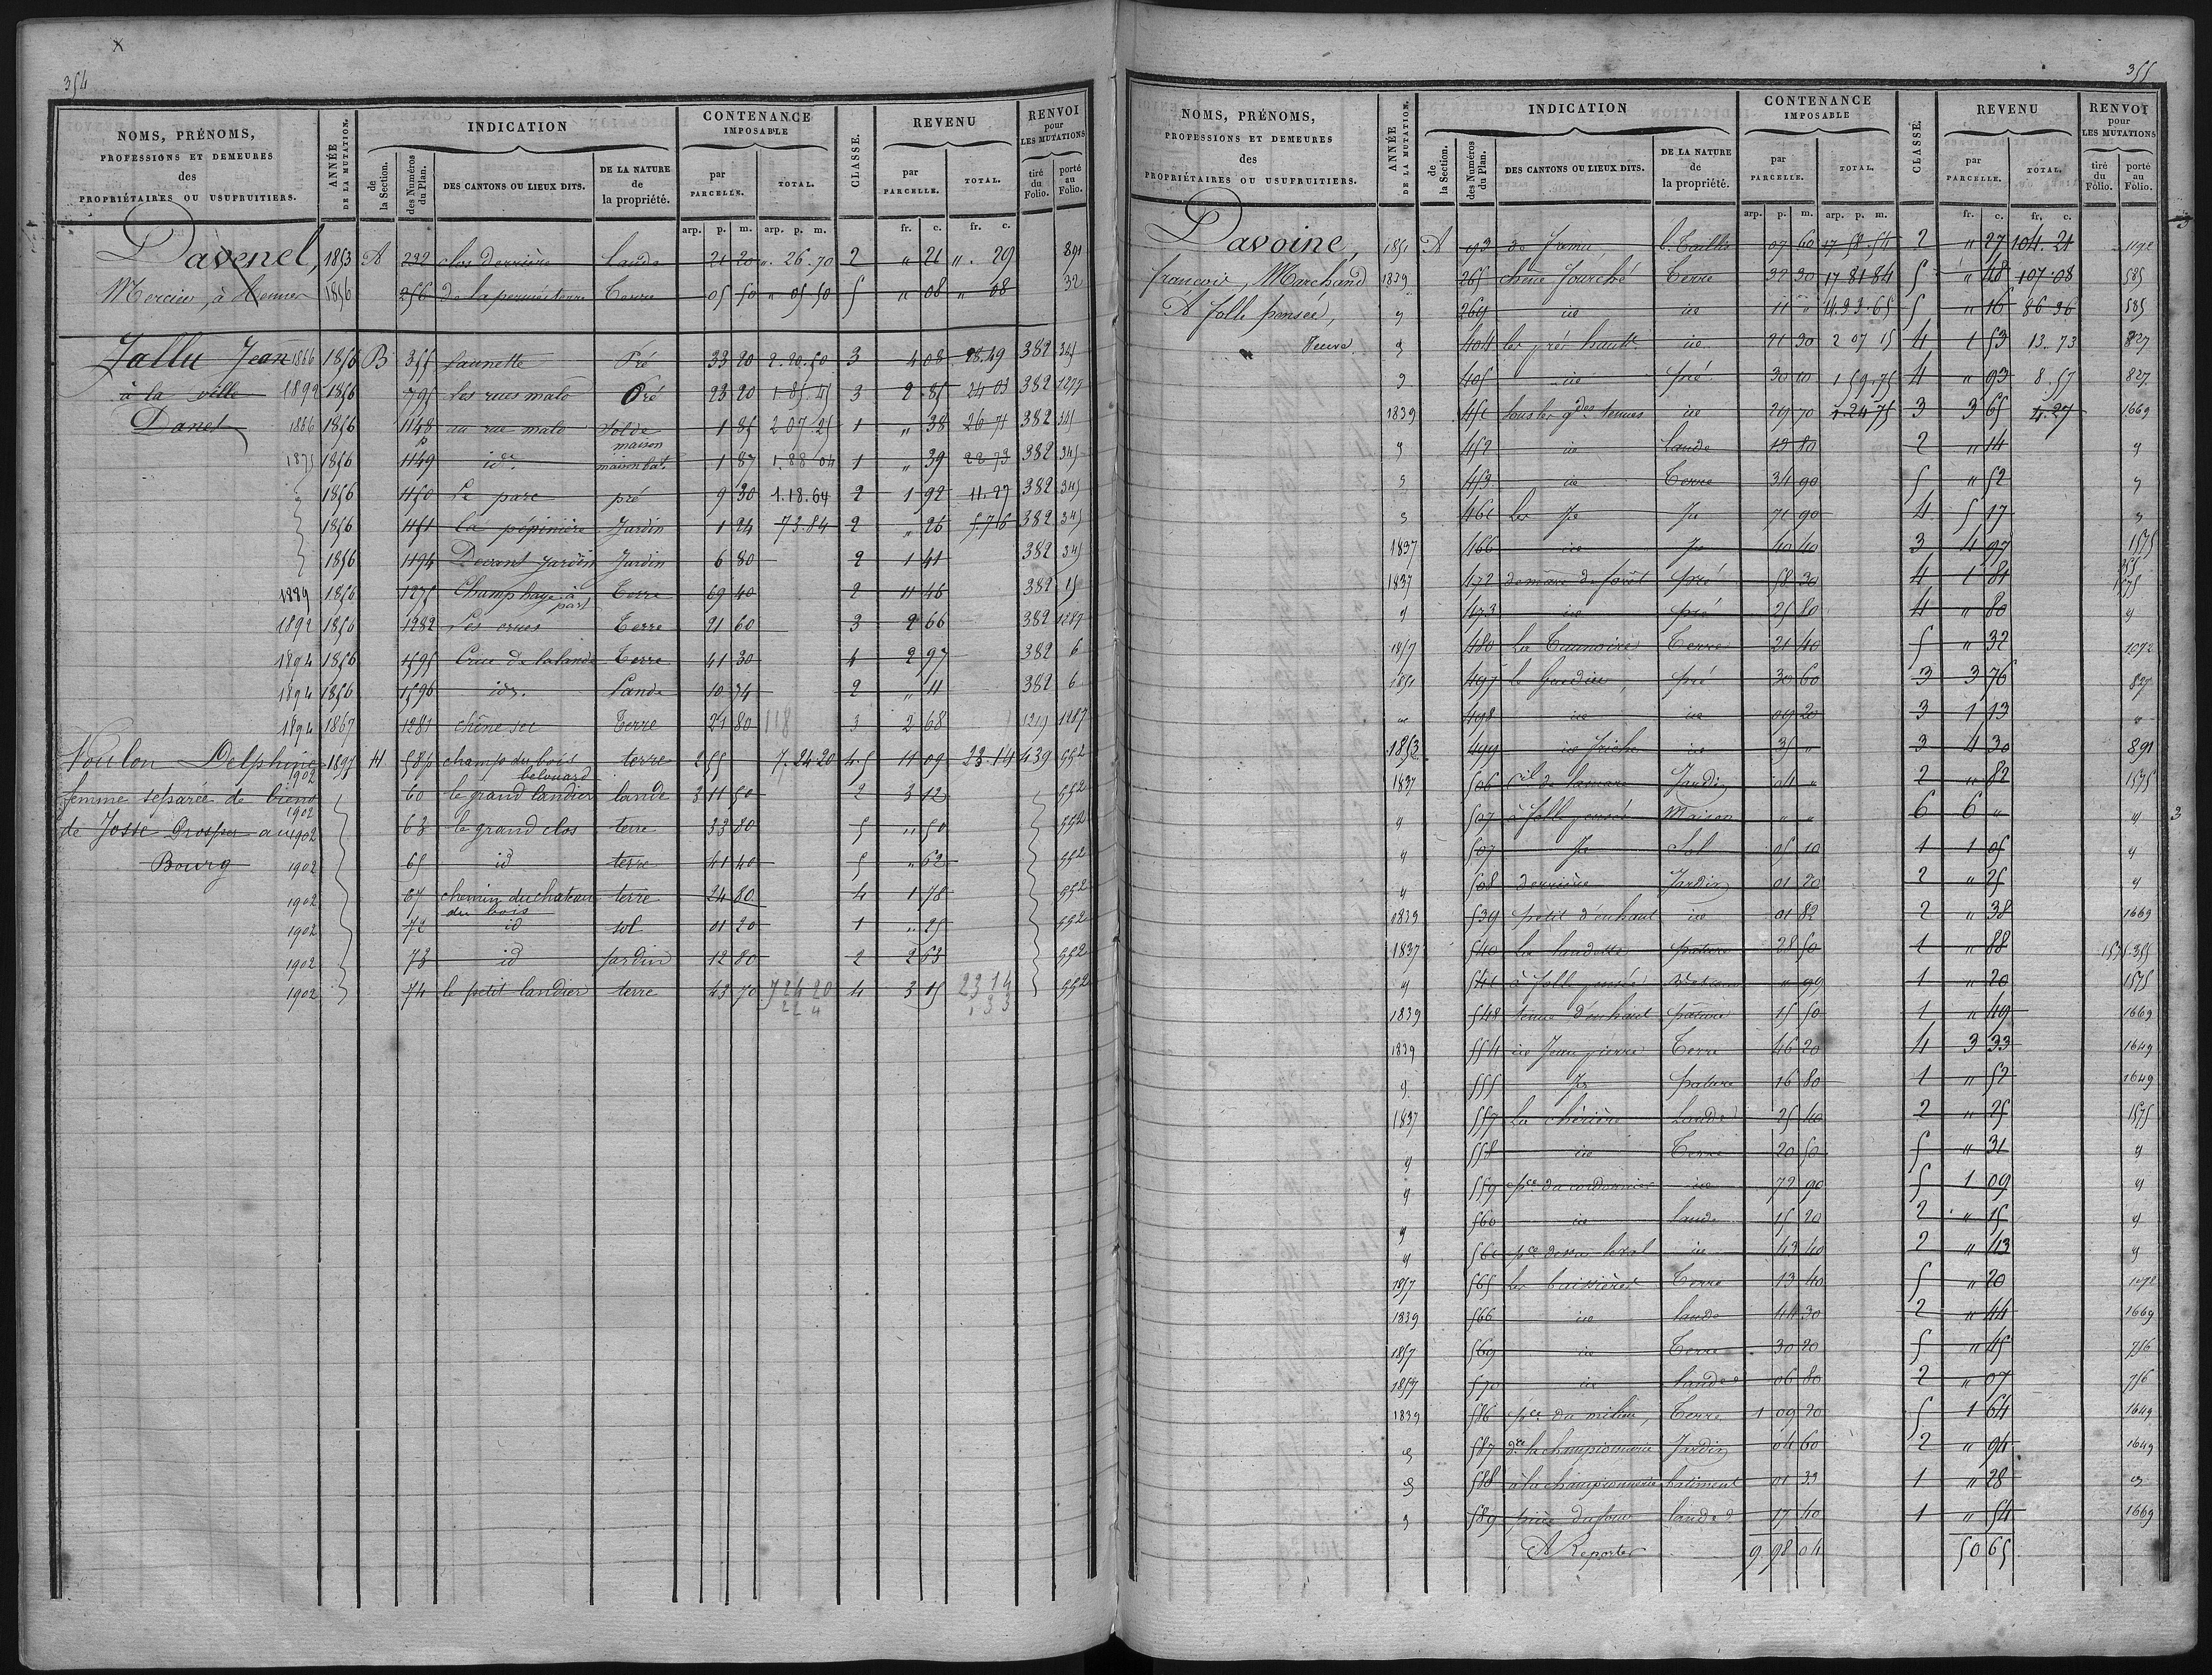 354
NOMS, PRÉNOMS, PROFESSIONS ET DEMEURES des PROPRIÉTAIRES OU USUFRUITIERS.
ANNÉE DE LA MUTATION.
INDICATION
de la Section.
des Numéros du Plan.
DES CANTONS OU LIEUX DITS.
DE LA NATURE de la propriété.
CONTENANCE IMPOSABLE
par PARCELLE.
TOTAL.
CLASSE.
REVENU
par PARCELLE.
TOTAL.
RENVOI pour LES MUTATIONS
tiré du Folio.
porté au Folio.
arp. p. m. arp. p. m. fr. c. fr. c.
Davenel, 1853 A 232 clos derrière Lande 21 20 " 26.70 2 " 21 ". 29 891
Mercier, à 1856 256 Terre 05 50 " 05 50 5 " 08 " 08 32
Jallu Jean 1866 1856 B 355 Launette Pré 33 20 2.20.50 3 4 08 28.49 382 345
à la ville 1892 1856 795 Les rues malo Pré 23 20 1.85.45 3 2 85 24 03 382 1277
Danet 1886 1856 1148 p au rue malo Sol de maison 1 85 2 07 25 1 " 38 26 71 382 345
1875 1856 1149 id. maison bat. 1 87 1.88.04 1 " 39 22 73 382 345
1856 1150 Le parc pré 9 30 1.18.64 2 1 92 11.27 382 345
1856 1151 La pépinière Jardin 1 24 73.84 2 " 26 5.76 382 345
1856 1194 Devant Jardin Jardin 6 80 2 1 41 382 345
1889 1856 1275 Champ haye à part Terre 69 40 2 11 46 382 15
1892 1856 1282 Les crues Terre 21 60 3 2 66 382 1287
1894 1856 1595 Crue de la lande Terre 41 30 4 2 97 382 6
1894 1856 1596 id. Lande 10 34 2 " 11 382 6
1894 1867 1281 chêne sec Terre 21 80 118 3 2 68 1287
Noulon Delphine 1902 1897 H 58p champ du bois belouard terre 2 55 7.24.20 4.5 11 09 23.14 439 552
femme separée de biens 1902 60 le grand landier lande 3 11 50 2 3 12 552
de Josse Prosper au 1902 63 le grand clos terre 33 80 5 " 50 552
Bourg 1902 65 id terre 41 40 5 " 62 552
1902 67 chemin du chateau du bois terre 24 80 4 1 78 552
1902 72 id sol 01 20 1 " 25 552
1902 73 id jardin 12 80 2 2 63 552
1902 74 le petit landier terre 43 70 7 24 20 4 3 15 23 14 552
355
NOMS, PRÉNOMS, PROFESSIONS ET DEMEURES des PROPRIÉTAIRES OU USUFRUITIERS.
ANNÉE DE LA MUTATION.
INDICATION
de la Section.
des Numéros du Plan.
DES CANTONS OU LIEUX DITS.
DE LA NATURE de la propriété.
CONTENANCE IMPOSABLE
par PARCELLE.
TOTAL.
CLASSE.
REVENU
par PARCELLE.
TOTAL.
RENVOI pour LES MUTATIONS
tiré du Folio.
porté au Folio.
arp. p. m. arp. p. m. fr. c. fr. c.
Davoine, 1851 A 193 b. taillis 07 60 17 58.54 2 " 27 104.21
françois, Marchand 1839 265 chêne fourché Terre 32 30 17 81 84 5 " 48 107.08 585
A folle pensée, 269 id id 11 " 14.93.65 5 " 16 86 36 585
Veuve 404 les prés hauts id 21 30 2 07 15 4 1 53 13.73 827
405 id pré 30 10 1 59.75 4 " 93 8.57 827
1839 451 sous les gdes tennes id 29 70 1.24 75 3 3 65 4.27 1669
452 id lande 13 80 2 " 14
453 id Terre 34 90 5 " 52
461 Les Jo 71 90 4 5 17
1837 466 id 40 40 3 4 97 1575
1837 472 pré 58 30 4 1 81 1575
473 id pré 25 80 4 " 80
1857 480 Terre 21 40 5 " 32 1072
1851 497 pré 30 60 3 3 76 827
498 id id 09 20 3 1 13
1853 499 id friche id 35 " 3 4 30 891
1837 506 Jardin 04 " 2 " 82 1575
507 à folle pensée Maison " " 6 6 "
507 Sol 05 10 1 1 05
508 derrière Jardin 01 20 2 " 25
1839 539 petit d'enhaut id 01 82 2 " 38 1669
1837 540 Les landette pature 28 50 1 " 88 1575.355
541 à folle pensée " 99 1 " 20 1575
1839 548 tenue d'enhaut pature 15 50 1 " 49 1669
1839 554 id Jean pierre Terre 46 20 4 3 33 1649
555 pature 16 80 1 " 52 1649
1837 557 Lande 25 40 2 " 25 1575
558 id Terre 20 50 5 " 31
559 pce du cordonnier id 72 90 5 1 09
560 id lande 15 20 2 " 15
561 id 43 40 2 " 43
1857 565 les buissières Terre 13 40 5 " 20 1072
1839 566 id lande 44 30 2 " 44 1669
1857 569 id Terre 30 20 5 " 45 756
1857 570 id lande 06 80 2 " 07 756
1839 586 pce du milieu, Terre 1 09 20 5 1 64 1649
587 de la championnerie Jardin 04 60 2 " 94 1649
588 à la championnerie batiment 01 33 1 " 28
589 pièce du four lande 17 40 1 " 54 1669
A Reporter 9 98 04 50 65